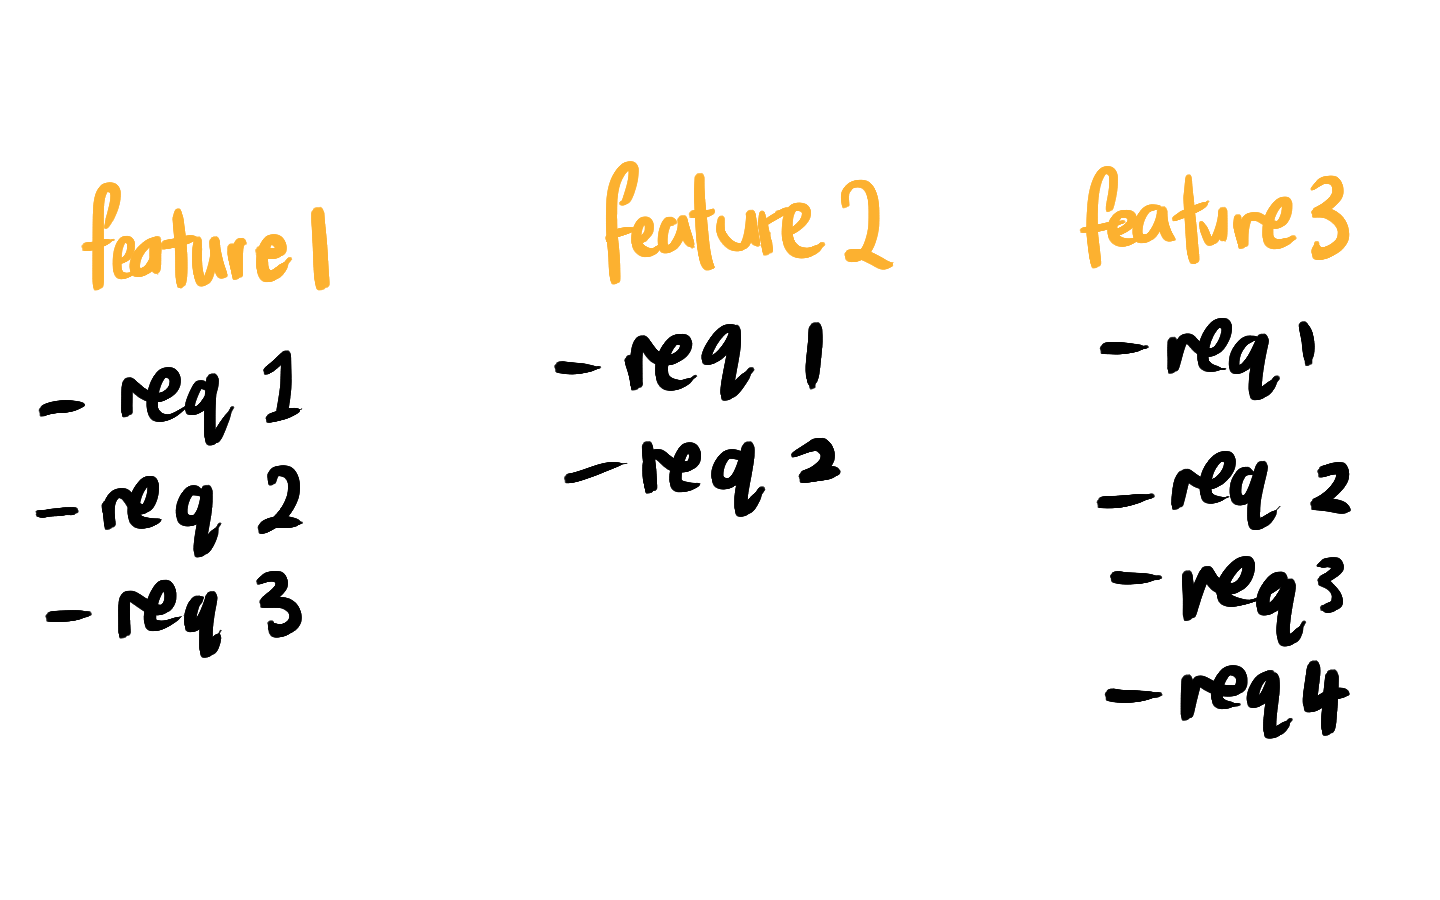 feature 1
- req 1
- req 2
- req 3
feature 2
- req 1
- req 2
feature 3
- req 1
- req 2
- req 3
- req 4